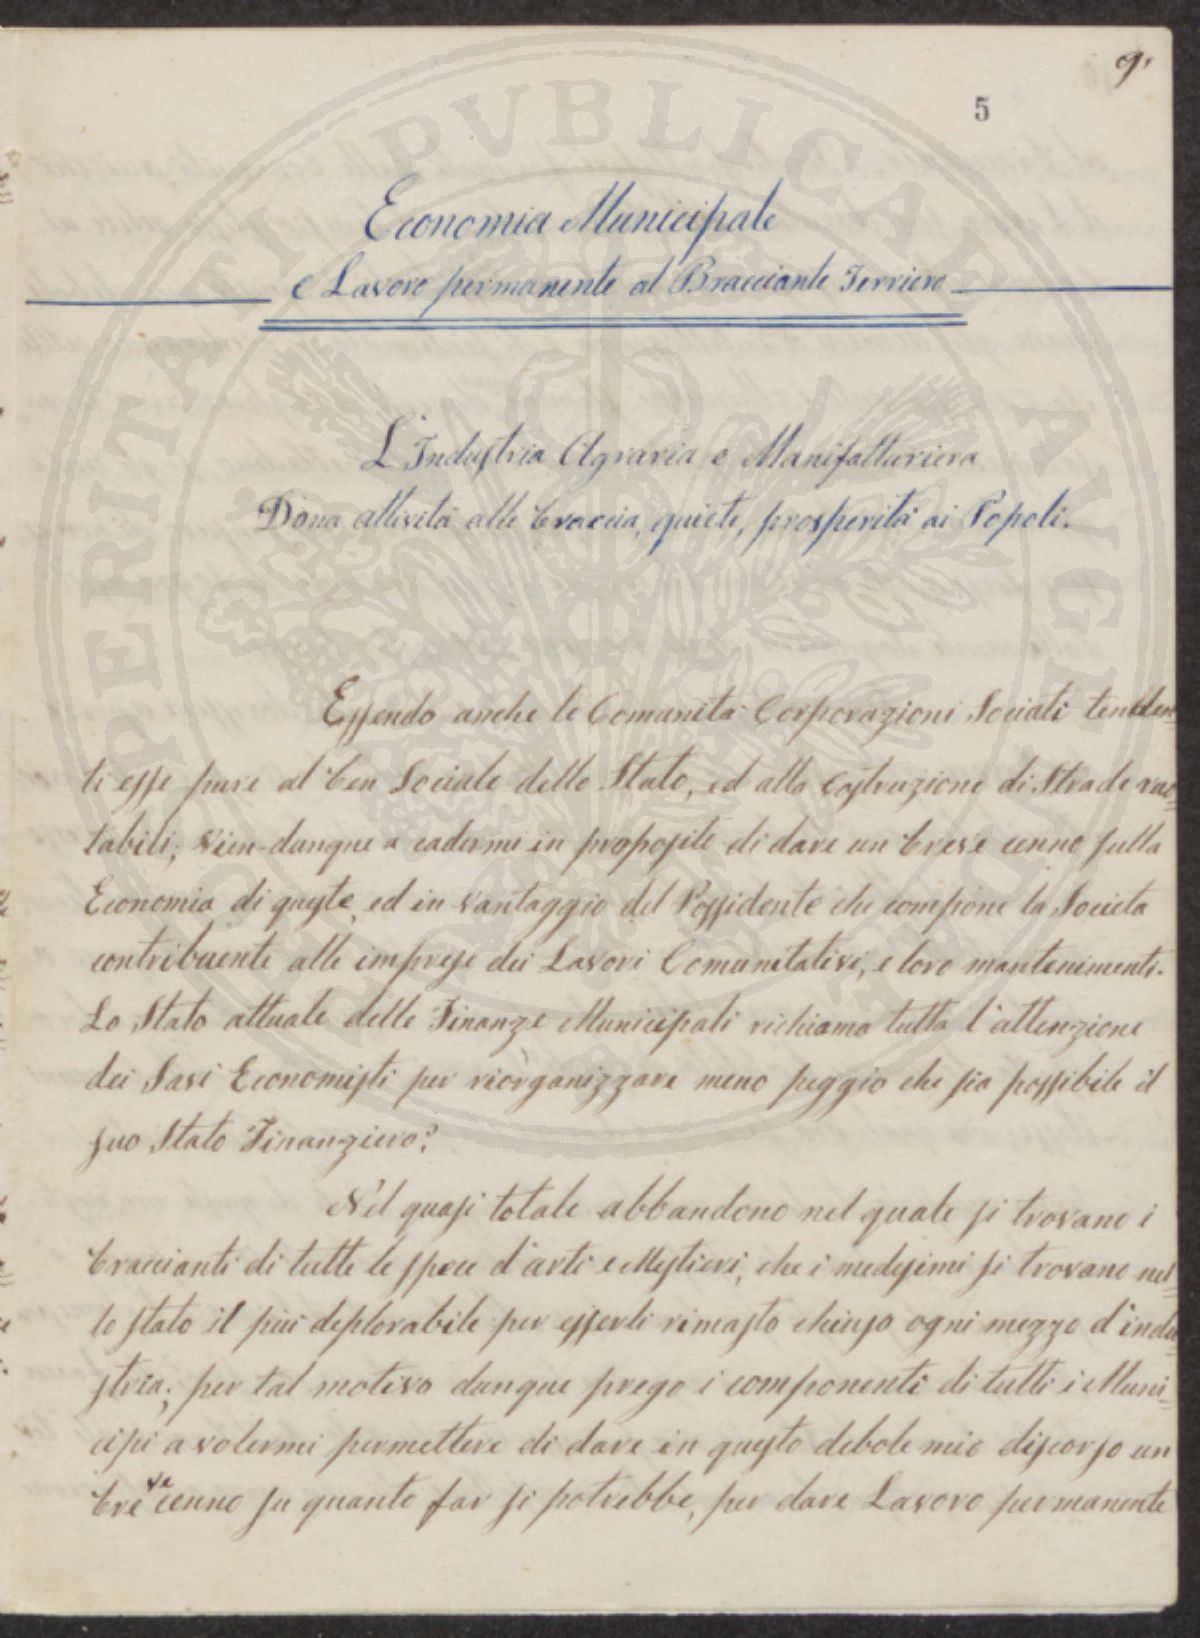 9.
5
Economia Municipale
e Lavoro permanente al Bracciante Terriero
L'Industria Agraria e Manifatturiera
Dona attività alle braccia, quiete, prosperità ai Popoli.
Essendo anche le Comunità Corporazioni Sociali tenden
ti esse pure al ben Sociale dello Stato, ed alla costruzione di Strade ruo=
tabili; vien dunque a cadermi in proposito di dare un breve cenno sulla
Economia di queste, ed in vantaggio del Possidente che compone la Società
contribuente alle imprese dei Lavori Comunitativi, e loro mantenimenti.
Lo Stato attuale delle Finanze Municipali richiama tutta l'attenzione
dei Savi Economisti per riorganizzare meno peggio che sia possibile il
suo Stato Finanziero?
Nel quasi totale abbandono nel quale si trovano i
braccianti di tutte le spece d'arti e Mestieri, che i medesimi si trovano nel=
lo stato il più deplorabile per esserli rimasto chiuso ogni mezzo d'indu=
stria; per tal motivo dunque prego i componenti di tutti i Muni=
cipi a volermi permettere di dare in questo debole mio discorso un
breve cenno su quanto far si potrebbe, per dare Lavoro permanente
PERITATI PVBLICAE AVGE